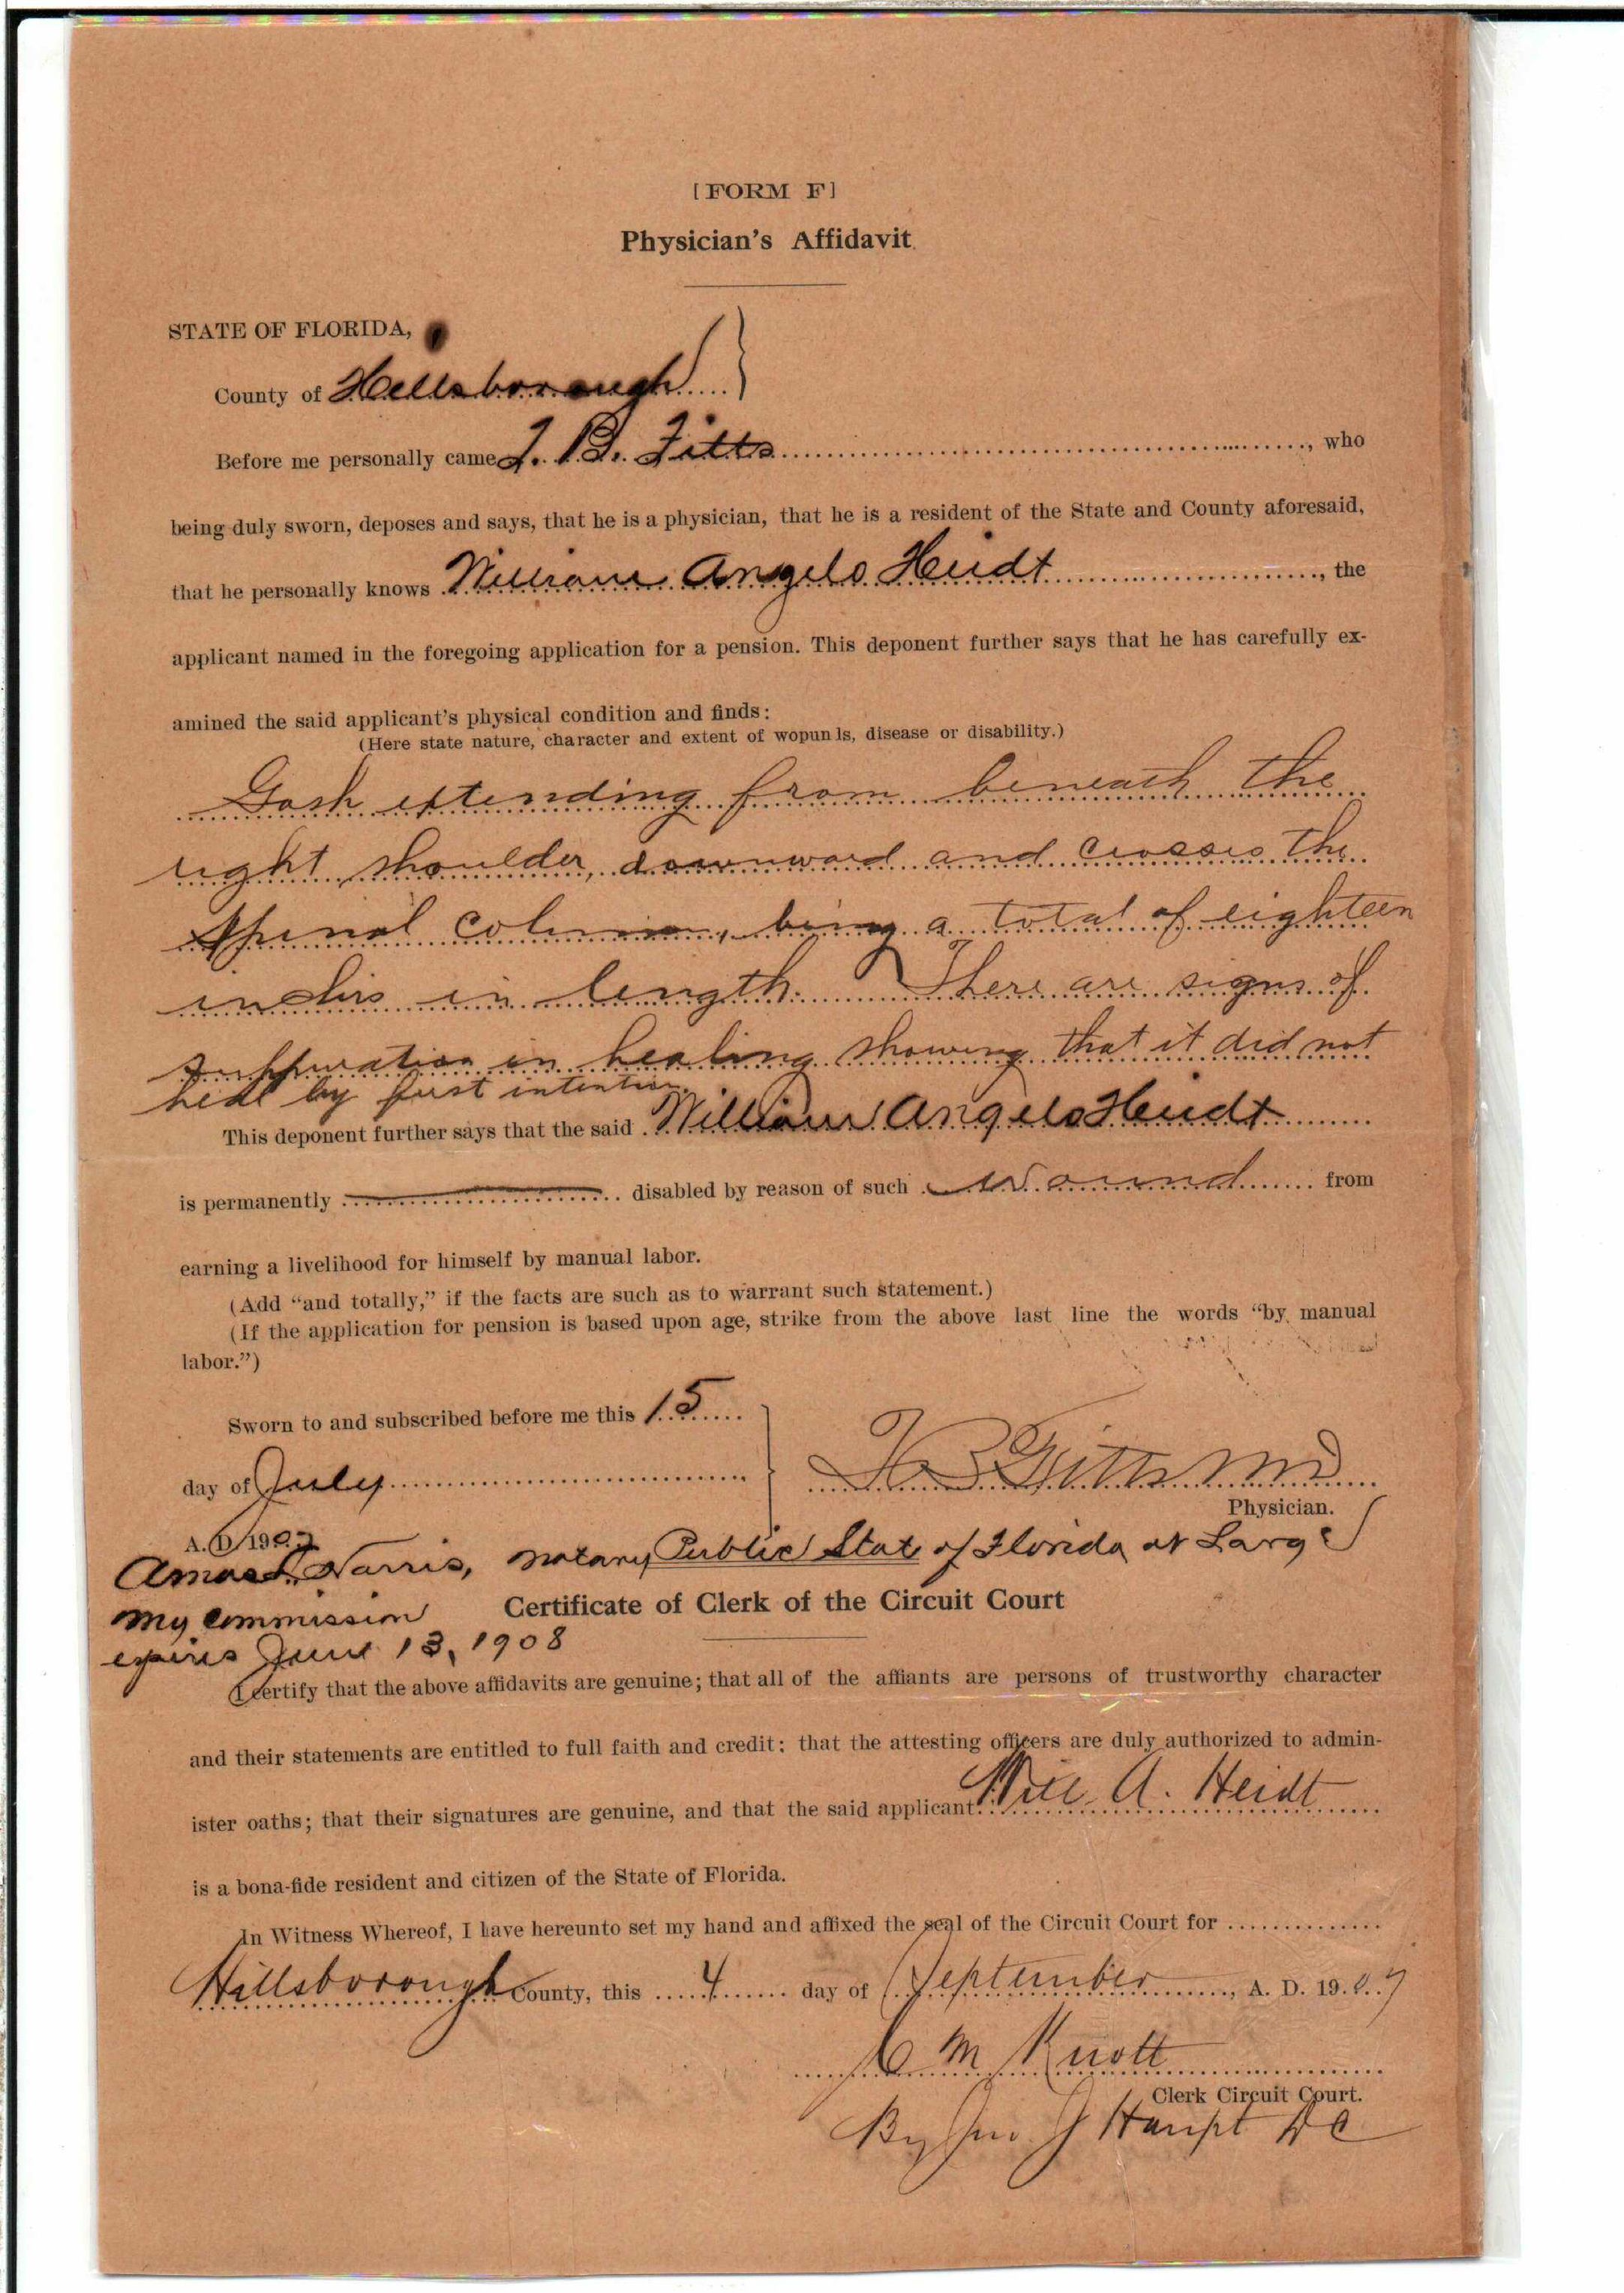 [FORM F]
Physician's Affidavit.
STATE OF FLORIDA,
County of Hillsborough
Before me personally came J. B. Fitts, who
being duly sworn, deposes and says, that he is a physician, that he is a resident of the State and County aforesaid,
that he personally knows William Angelo Heidt, the
applicant named in the foregoing application for a pension. This deponent further says that he has carefully ex-
amined the said applicant's physical condition and finds:
(Here state nature, character and extent of wopun ls, disease or disability.)
Gash extending from beneath the
right shoulder, downward and crosses the
spinal column, being a total of eighteen
inches in length. There are signs of
suppuration in healing showing that it did not
heal by first intention.
This deponent further says that the said William Angelo Heidt
is permanently disabled by reason of such wound from
earning a livelihood for himself by manual labor.
(Add "and totally," if the facts are such as to warrant such statement.)
(If the application for pension is based upon age, strike from the above last line the words "by manual
labor.")
Sworn to and subscribed before me this 15
day of July
Fitts MD
Physician.
A. D. 1907
Amos L. Norris, Notary Public State of Florida at Large
My Commission
expires June 13, 1908
Certificate of Clerk of the Circuit Court
I certify that the above affidavits are genuine; that all of the affiants are persons of trustworthy character
and their statements are entitled to full faith and credit: that the attesting officers are duly authorized to admin-
ister oaths; that their signatures are genuine, and that the said applicant Will A. Heidt
is a bona-fide resident and citizen of the State of Florida.
In Witness Whereof, I have hereunto set my hand and affixed the seal of the Circuit Court for
Hillsborough County, this 4 day of September, A. D. 1907
C M Knott
Clerk Circuit Court.
By Jno. J Haupt DC